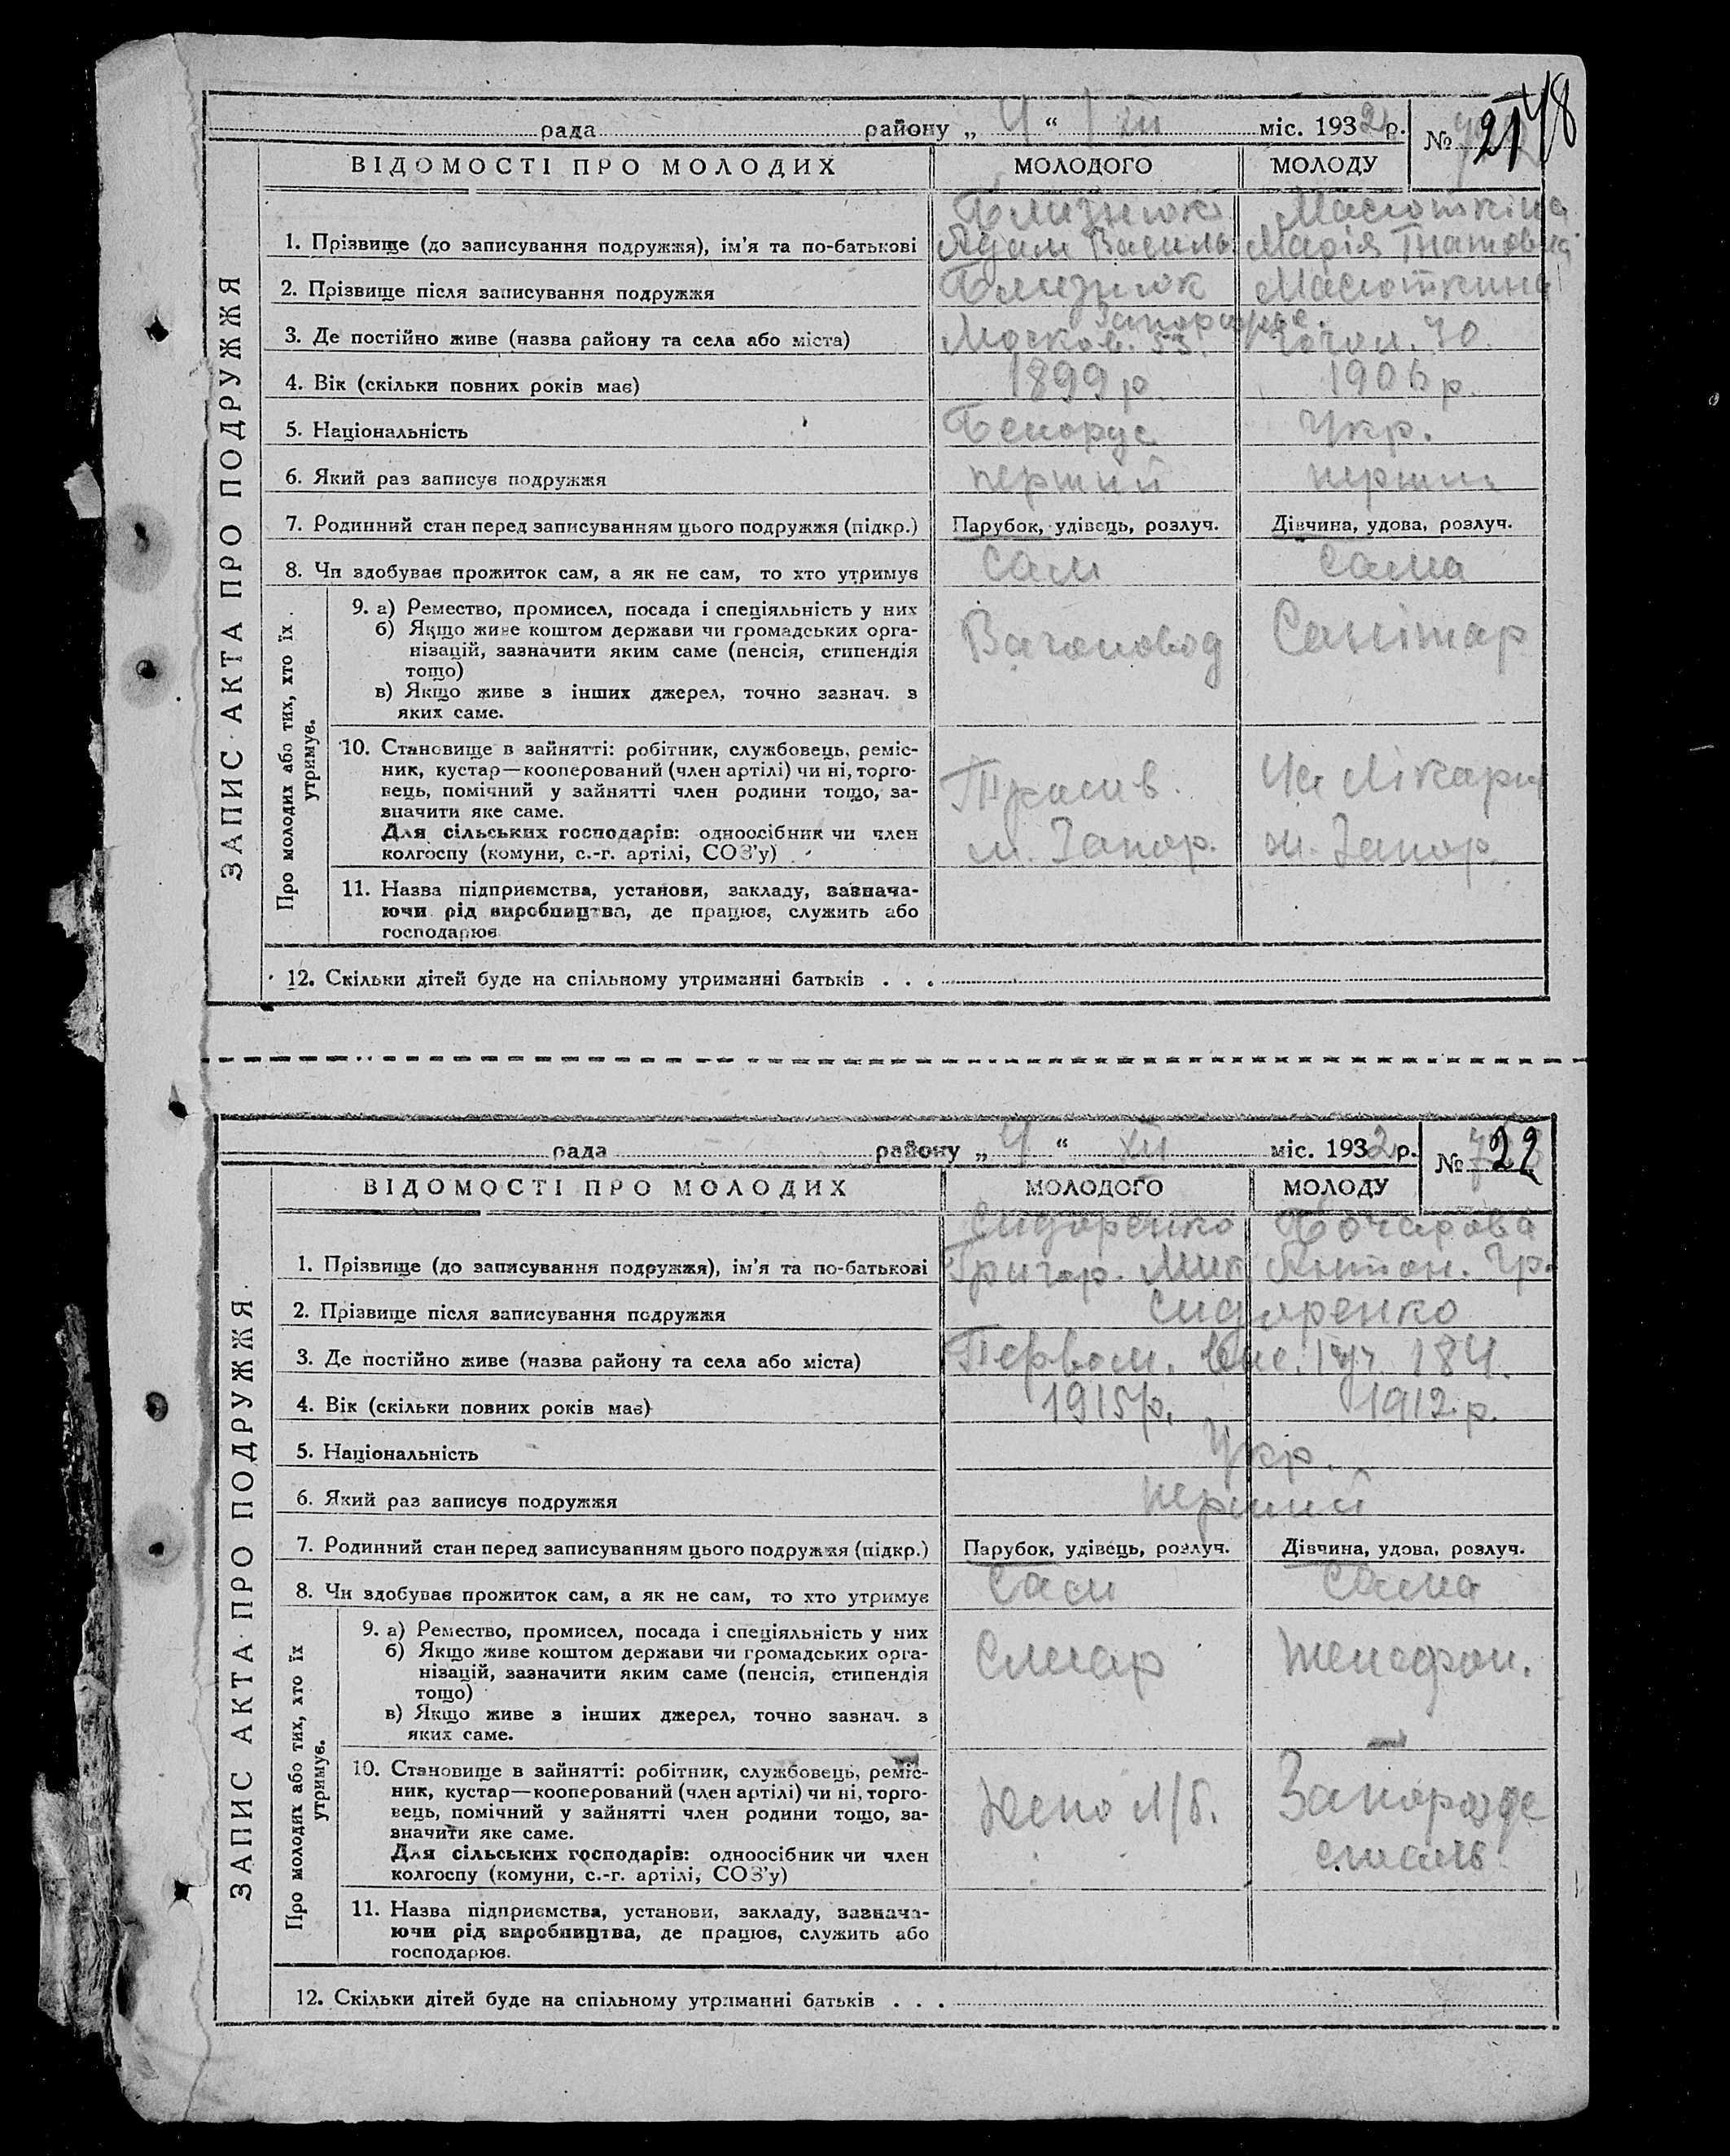 рада району „ 4 “ XII міс. 1932 р. № 21
48
ВІДОМОСТІ ПРО МОЛОДИХ МОЛОДОГО МОЛОДУ
ЗАПИС АКТА ПРО ПОДРУЖЖЯ
Близнюк Масюткіна
1. Прізвище (до записування подружжя), ім’я та по-батькові Адам Василь. Марія Гнатовна
2. Прізвище після записування подружжя Близнюк Масюткина
Запоріжже.
3. Де постійно живе (назва району та села або міста) Москов. 53. Гогол. 70.
4. Вік (скільки повних років має) 1899 р. 1906 р.
5. Національність Белорус Укр.
6. Який раз записує подружжя перший перший
7. Родинний стан перед записуванням цього подружжя (підкр.) Парубок, удівець, розлуч. Дівчина, удова, розлуч.
8. Чи здобуває прожиток сам, а як не сам, то хто утримує сам сама
Про молодих або тих, хто їх утримує.
9. а) Ремество, промисел, посада і спеціяльність у них
б) Якщо живе коштом держави чи громадських орга-
нізацій, зазначити яким саме (пенсія, стипендія
тощо)
в) Якщо живе з інших джерел, точно зазнач. з
яких саме.
Вагоновод Санітар
10. Становище в зайнятті: робітник, службовець, реміс-
ник, кустар—кооперований (член артілі) чи ні, торго-
вець, помічний у зайнятті член родини тощо, за-
значити яке саме.
Для сільських господарів: одноосібник чи член
колгоспу (комуни, с.-г. артілі, СОЗ’у)
м. Запор. м. Запор.
11. Назва підприємства, установи, закладу, зазнача-
ючи рід виробництва, де працює, служить або
господарює
12. Скільки дітей буде на спільному утриманні батьків . . .
рада району „ 4 “ XII міс. 1932 р. № 22
ВІДОМОСТІ ПРО МОЛОДИХ МОЛОДОГО МОЛОДУ
ЗАПИС АКТА ПРО ПОДРУЖЖЯ
Сидоренко Бочарова
1. Прізвище (до записування подружжя), ім’я та по-батькові Григор. Мик. Антон. Гр.
2. Прізвище після записування подружжя Сидоренко
3. Де постійно живе (назва району та села або міста) Первом. 184.
4. Вік (скільки повних років має) 1915 р. 1912 р.
5. Національність Укр.
6. Який раз записує подружжя перший
7. Родинний стан перед записуванням цього подружжя (підкр.) Парубок, удівець, розлуч. Дівчина, удова, розлуч.
8. Чи здобуває прожиток сам, а як не сам, то хто утримує сам сама
Про молодих або тих, хто їх утримує.
9. а) Ремество, промисел, посада і спеціяльність у них
б) Якщо живе коштом держави чи громадських орга-
нізацій, зазначити яким саме (пенсія, стипендія
тощо)
в) Якщо живе з інших джерел, точно зазнач. з
яких саме.
Слюсар телефон.
10. Становище в зайнятті: робітник, службовець, реміс-
ник, кустар—кооперований (член артілі) чи ні, торго-
вець, помічний у зайнятті член родини тощо, за-
значити яке саме.
Для сільських господарів: одноосібник чи член
колгоспу (комуни, с.-г. артілі, СОЗ’у)
Депо Л/б. Запоріжсталь
11. Назва підприємства, установи, закладу, зазнача-
ючи рід виробництва, де працює, служить або
господарює.
12. Скільки дітей буде на спільному утриманні батьків . . .